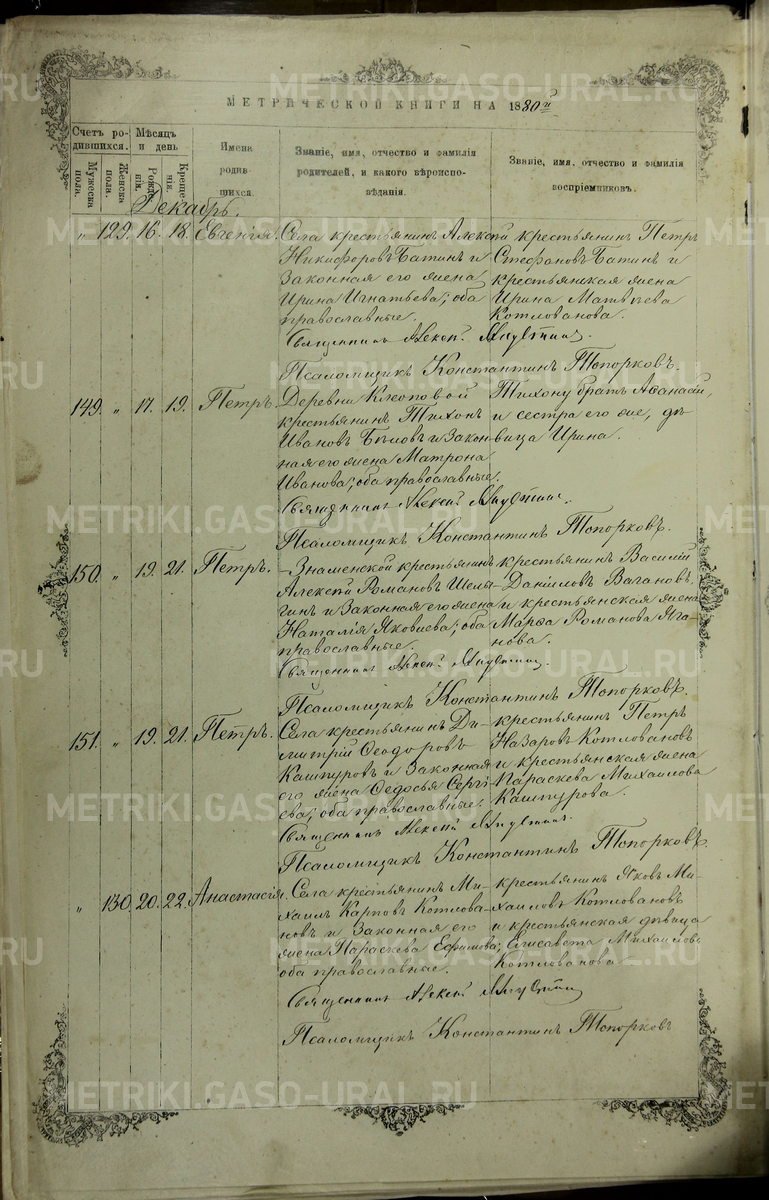 МЕТРИЧЕСКОЙ КНИГИ НА 1880й
Счетъ ро- дившихся. Мѣсяцъ и день Имена родив- шихся. Званіе, имя, отчество и фамилія родителей, и какого вѣроиспо- вѣданія. Званіе, имя, отчество и фамилія воспріемниковъ.
Мужеска пола. Женска пола. Рожде- нія. Креще- нія.
Декабрь.
„ 129. 16. 18. Евгенія. Села крестьянинъ Алексѣй крестьянинъ Петръ
Никифоровъ Батинъ и Стефановъ Батинъ и
законная его жена крестьянская жена
Ирина Игнатьева; оба Ирина Матвѣева
православные. Котлованова.
Священникъ Алекс.
Псаломщикъ Константинъ Топорковъ.
149. „ 17. 19. Петръ. Деревни Клеоповой Тихону братъ Аѳанасій,
крестьянинъ Тихонъ и сестра его же, дѣ-
Ивановъ Быловъ и закон- вица Ирина.
ная его жена Матрона
Иванова; оба православные.
Священникъ Алексѣй
Псаломщикъ Константинъ Топорковъ.
150. „ 19. 21. Петръ. Знаменской крестьянинъ крестьянинъ Василій
Алексѣй Романовъ Шемя- Даниловъ Вагановъ
гинъ и законная его жена и крестьянская жена
Наталія Яковлева; оба Марѳа Романова Яга-
православные. нова.
Священникъ Алексѣй
Псаломщикъ Константинъ Топорковъ.
151. „ 19. 21. Петръ. Села крестьянинъ Ди- крестьянинъ Петръ
митрій Ѳеодоровъ Назаровъ Котловановъ
Кашпуровъ и законная и крестьянская жена
его жена Ѳедосья Сергі- Параскева Михаилова
ева; оба православные. Кашпурова.
Священникъ Алексѣй
Псаломщикъ Константинъ Топорковъ.
„ 130. 20. 22. Анастасія. Села крестьянинъ Ми- крестьянинъ Яковъ Ми-
хаилъ Карповъ Котлова- хаиловъ Котловановъ
новъ и законная его и крестьянская дѣвица
жена Параскева Ефимова; Елисавета Михаилова
оба православные. Котлованова
Священникъ Алексѣй
Псаломщикъ Константинъ Топорковъ
METRIKI.GASO-URAL.RU